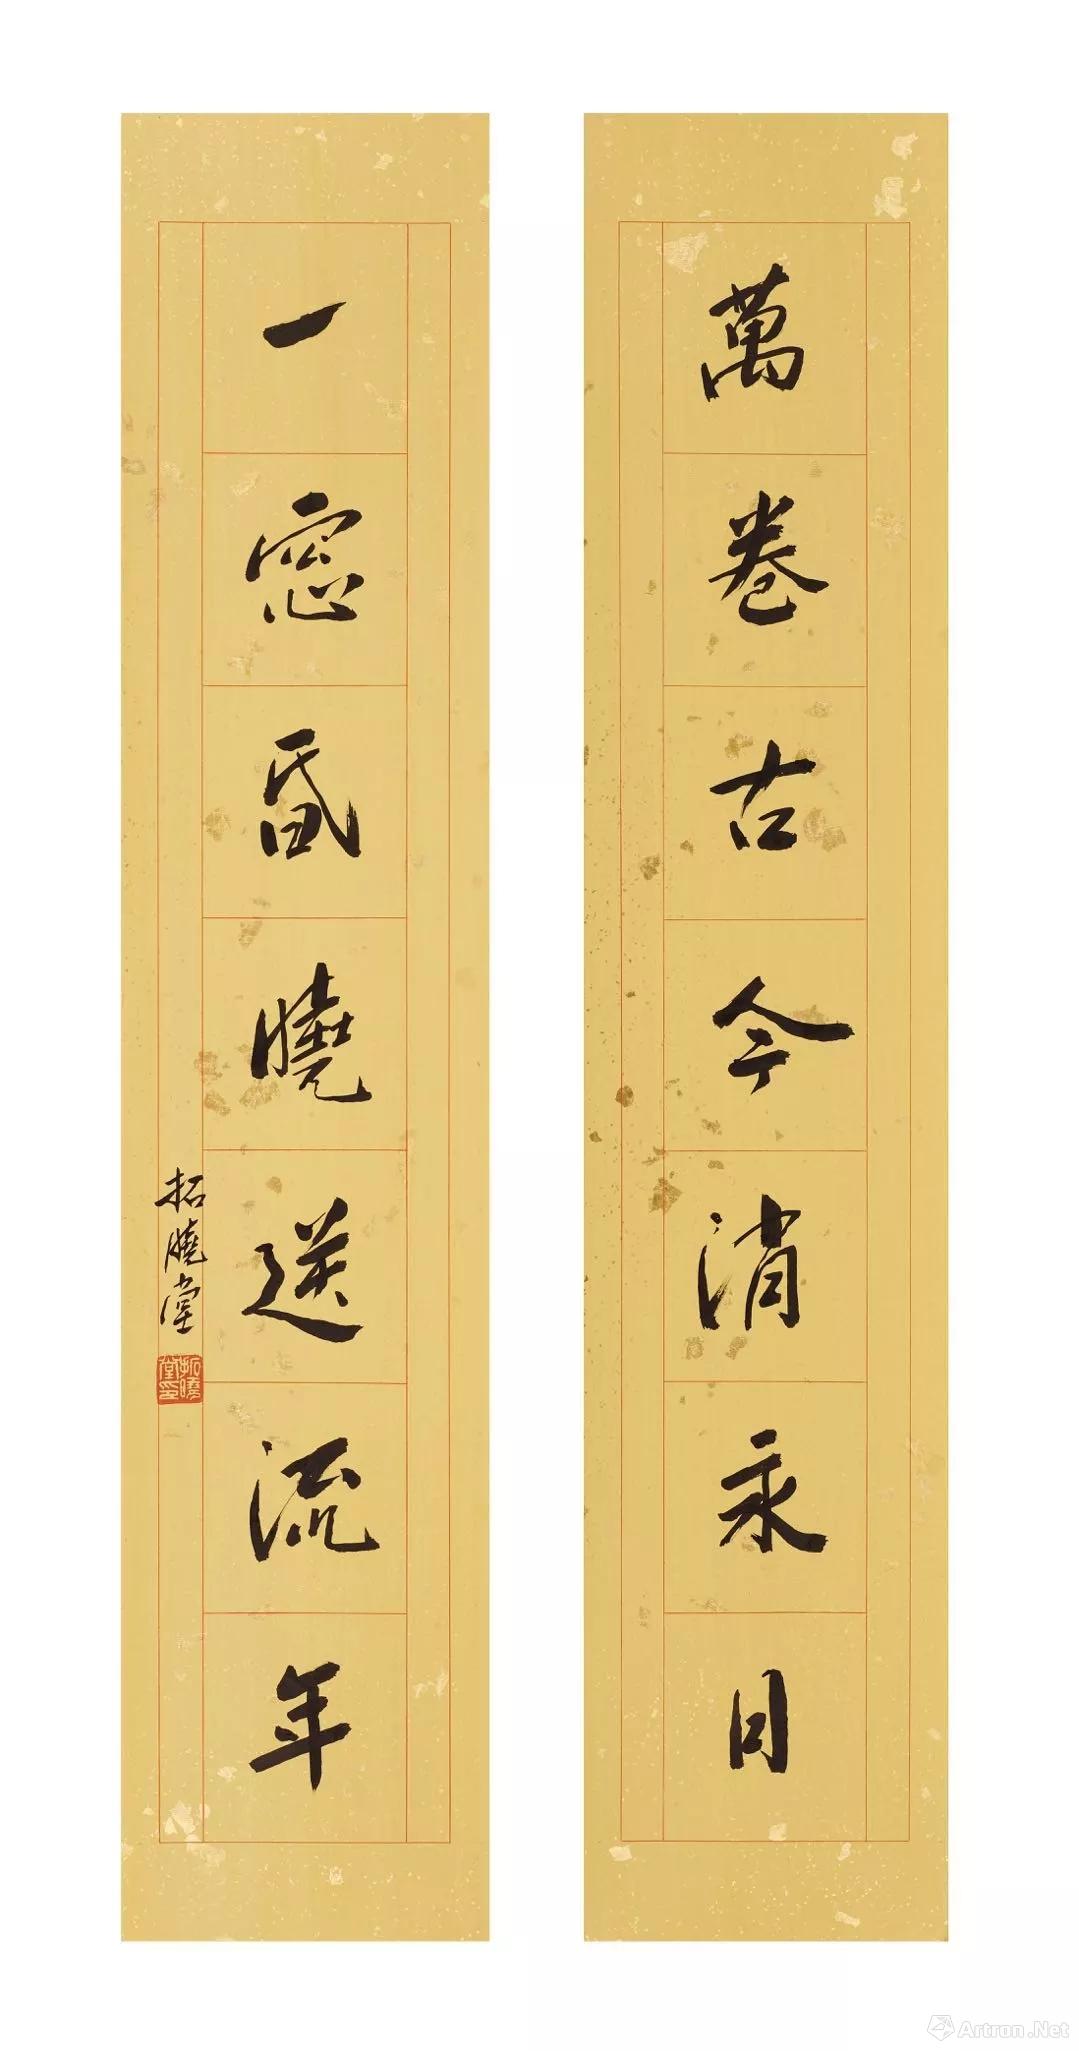 萬卷古今消永日
一窓昏曉送流年
拓曉堂
拓曉堂印
Artron.Net